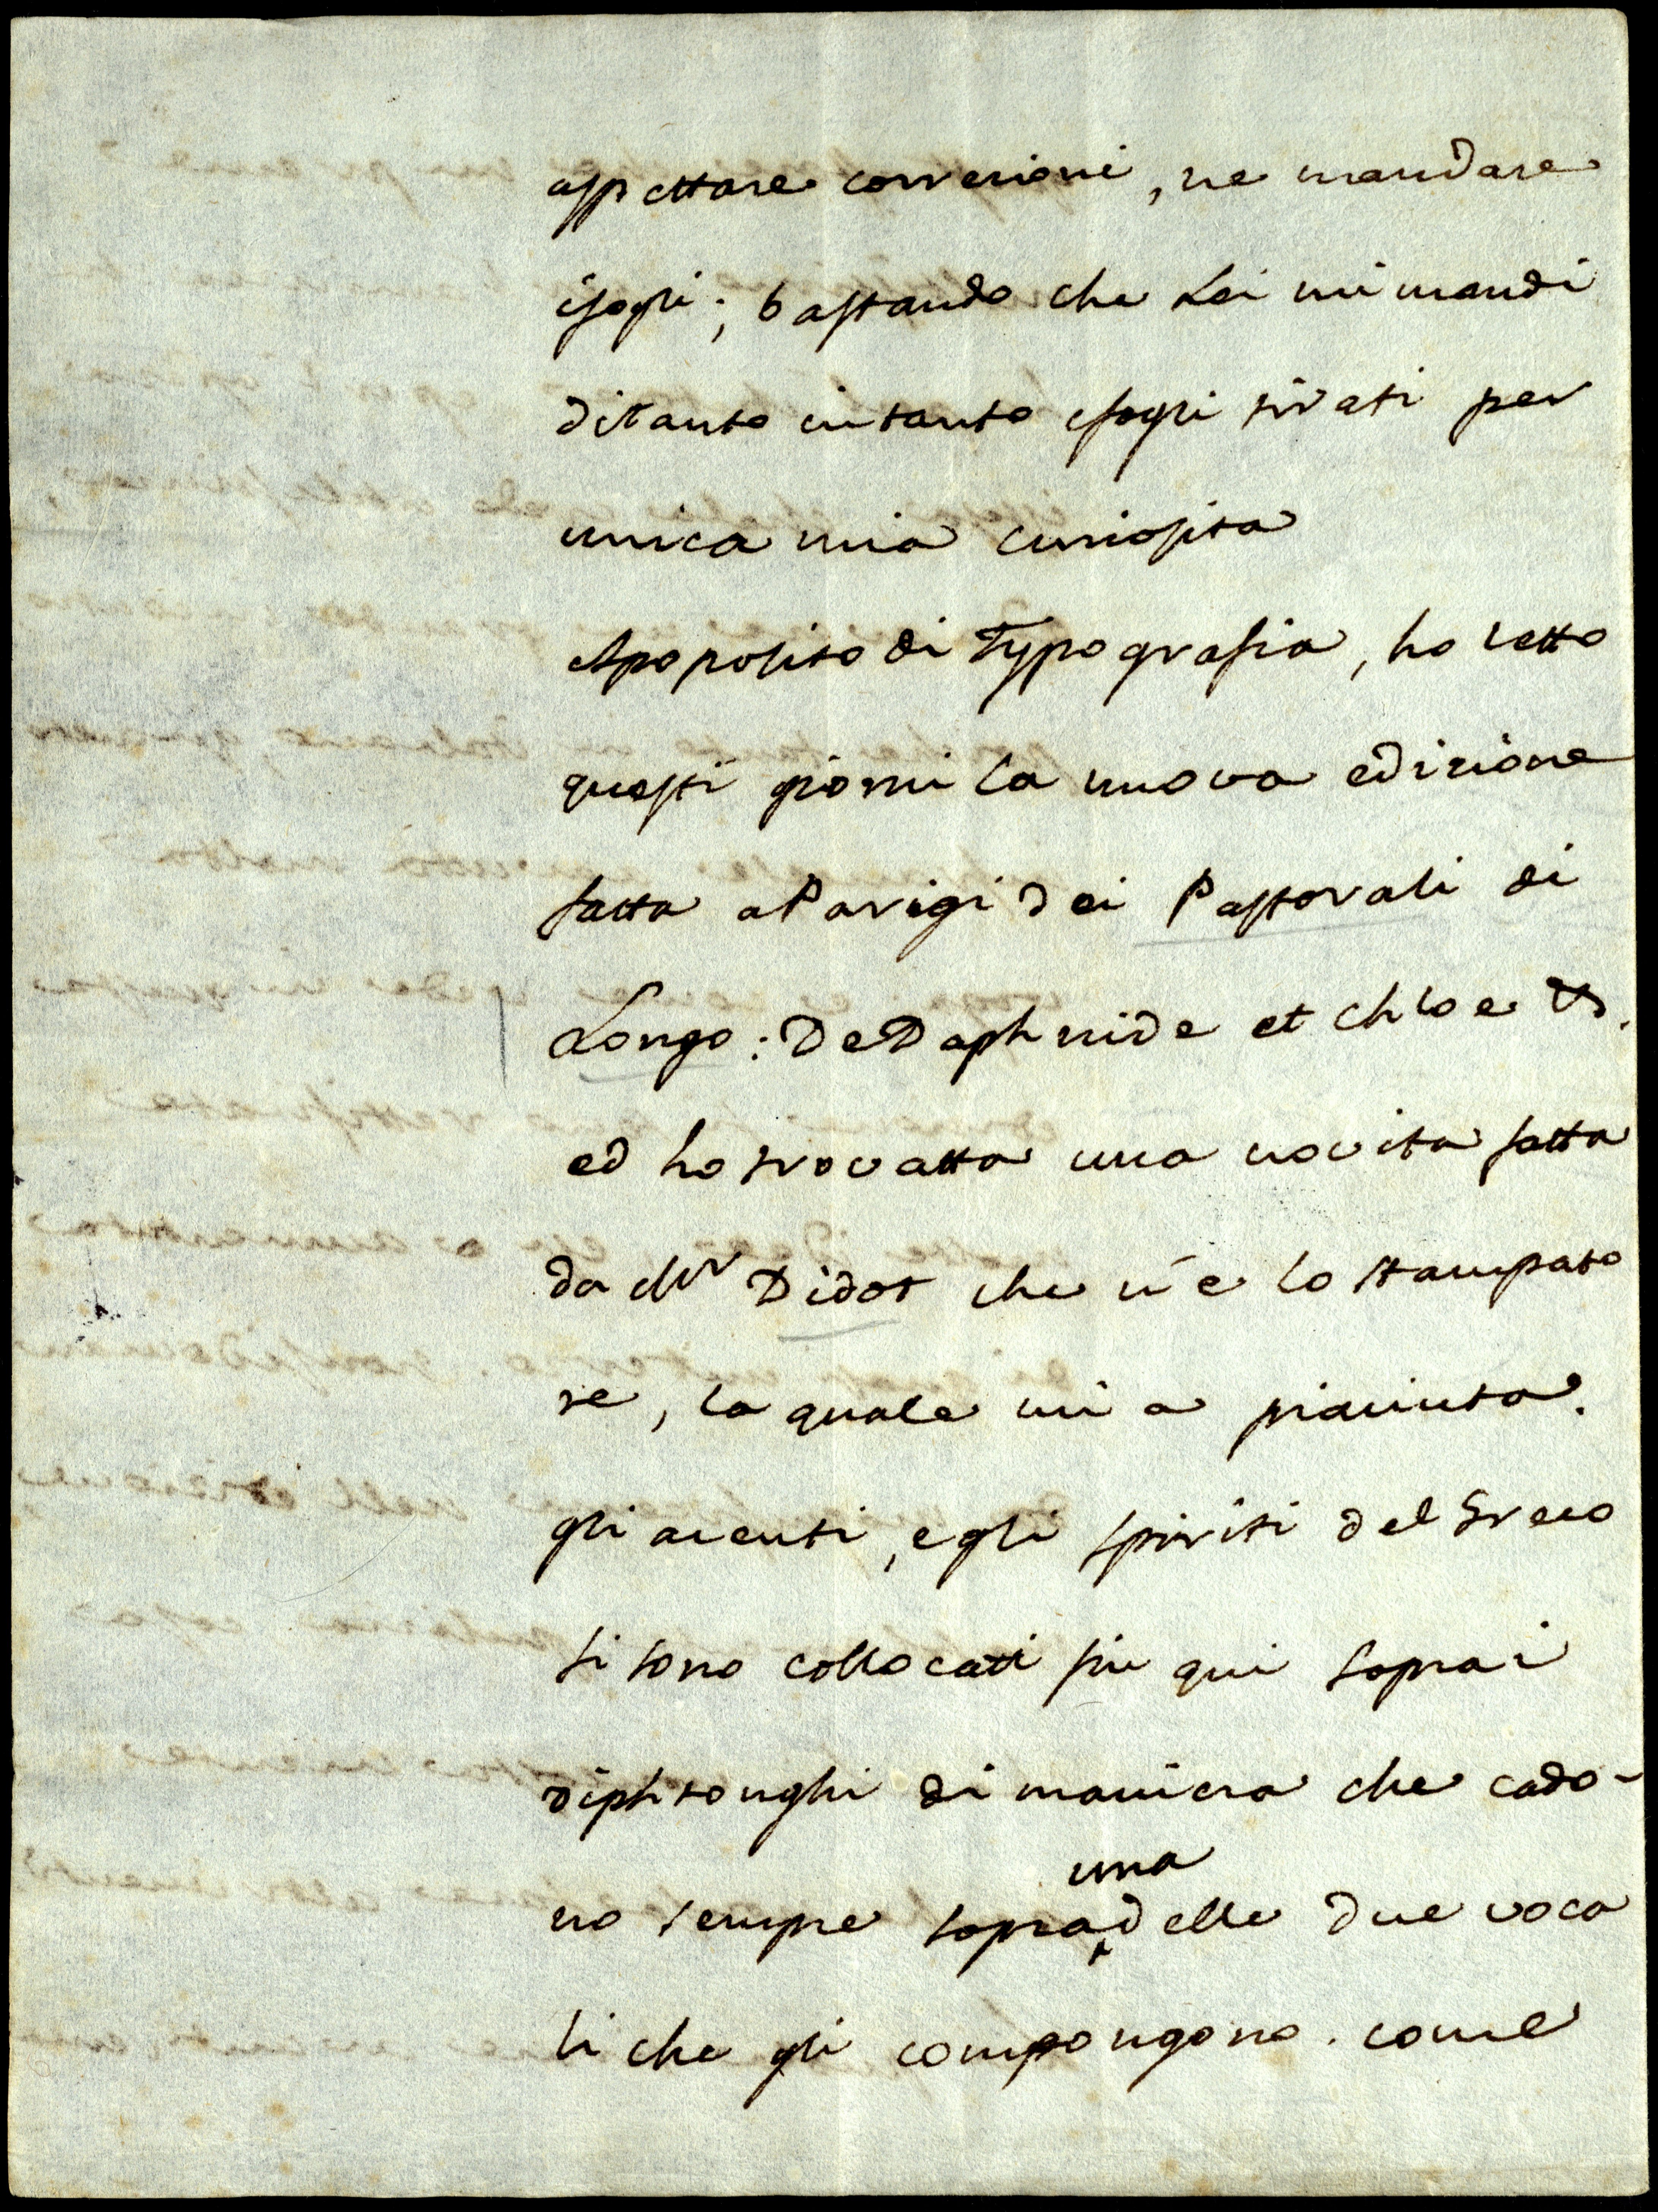 aspettare correzioni, ne mandare
ifogli; bastando che Lei mi mandi
ditanto intanto ifogli tirati per
unica mia curiosita
Apoposito di Typografia, ho letto
questi giorni la nuova edizione
fatta aParigi dei Pastorali di
Longo: DeDaphnide et Chloe &.
ed ho trovatta una novita fatta
da Mr Didot che n'e lo stampato
re, la quale mi a piaciuta.
gli acenti, egli spiriti del Greco
si sono collocatti fin qui sopra i
diphtonghi di maniera che cado-
no sempre sopra una delle due voca
li che gli compongono. come